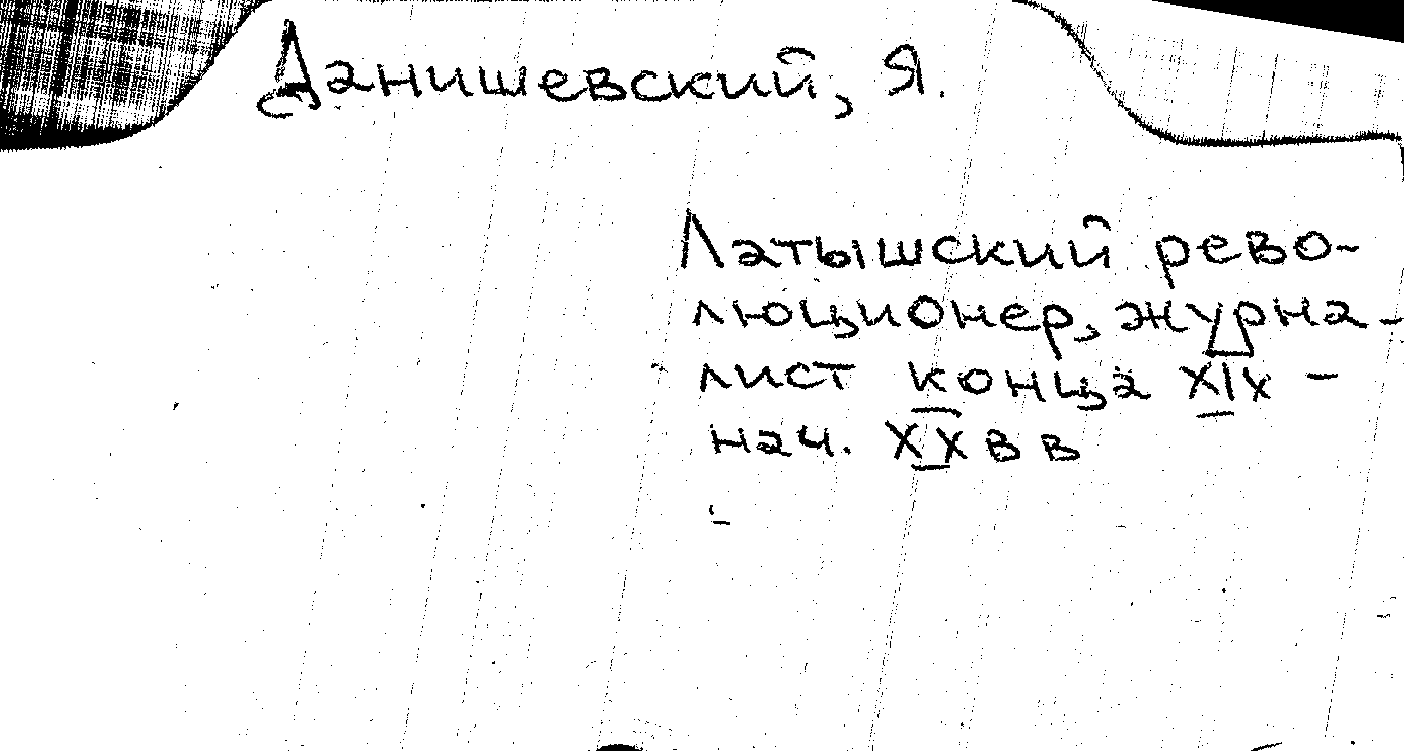 Данишевский, Я.
Латышский рево-
люционер, журна-
лист конца XIX -
нач. XX в в